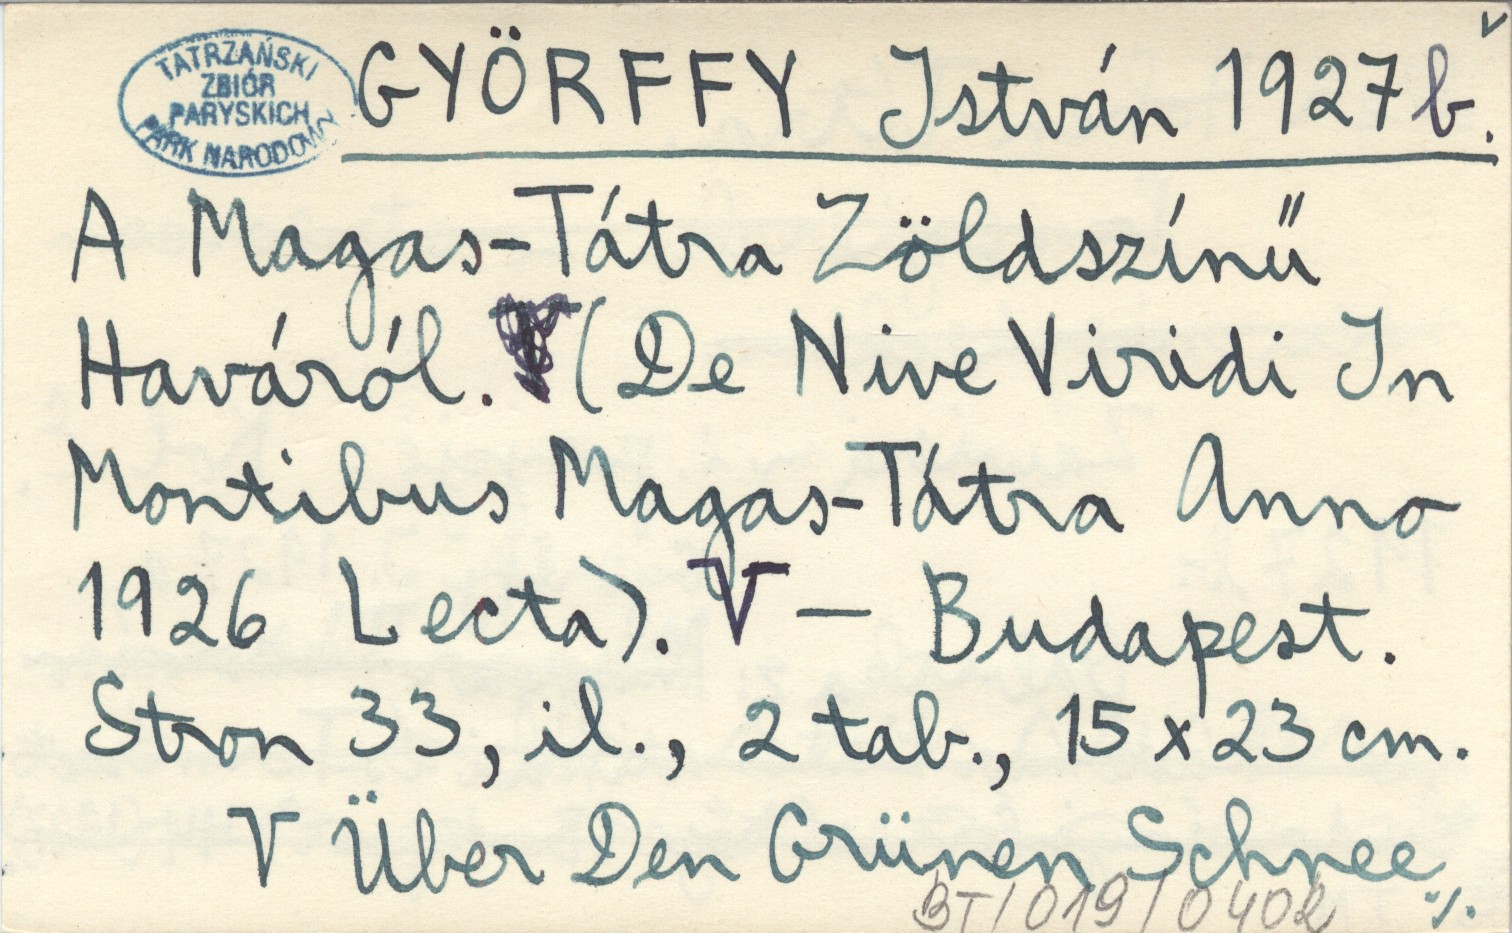 TATRZAŃSKI
ZBIÓR
PARYSKICH
PARK NARODOWY
GYÖRFFY István 1927b.
A Magas-Tátra Zöldszínű
Haváról. (De Nive Viridi In
Montibus Magas-Tátra Anno
1926 Lecta). V — Budapest.
Stron 33, il., 2 tab., 15 x 23 cm.
V Über Den Grünen Schnee ./.
BT/019/0402